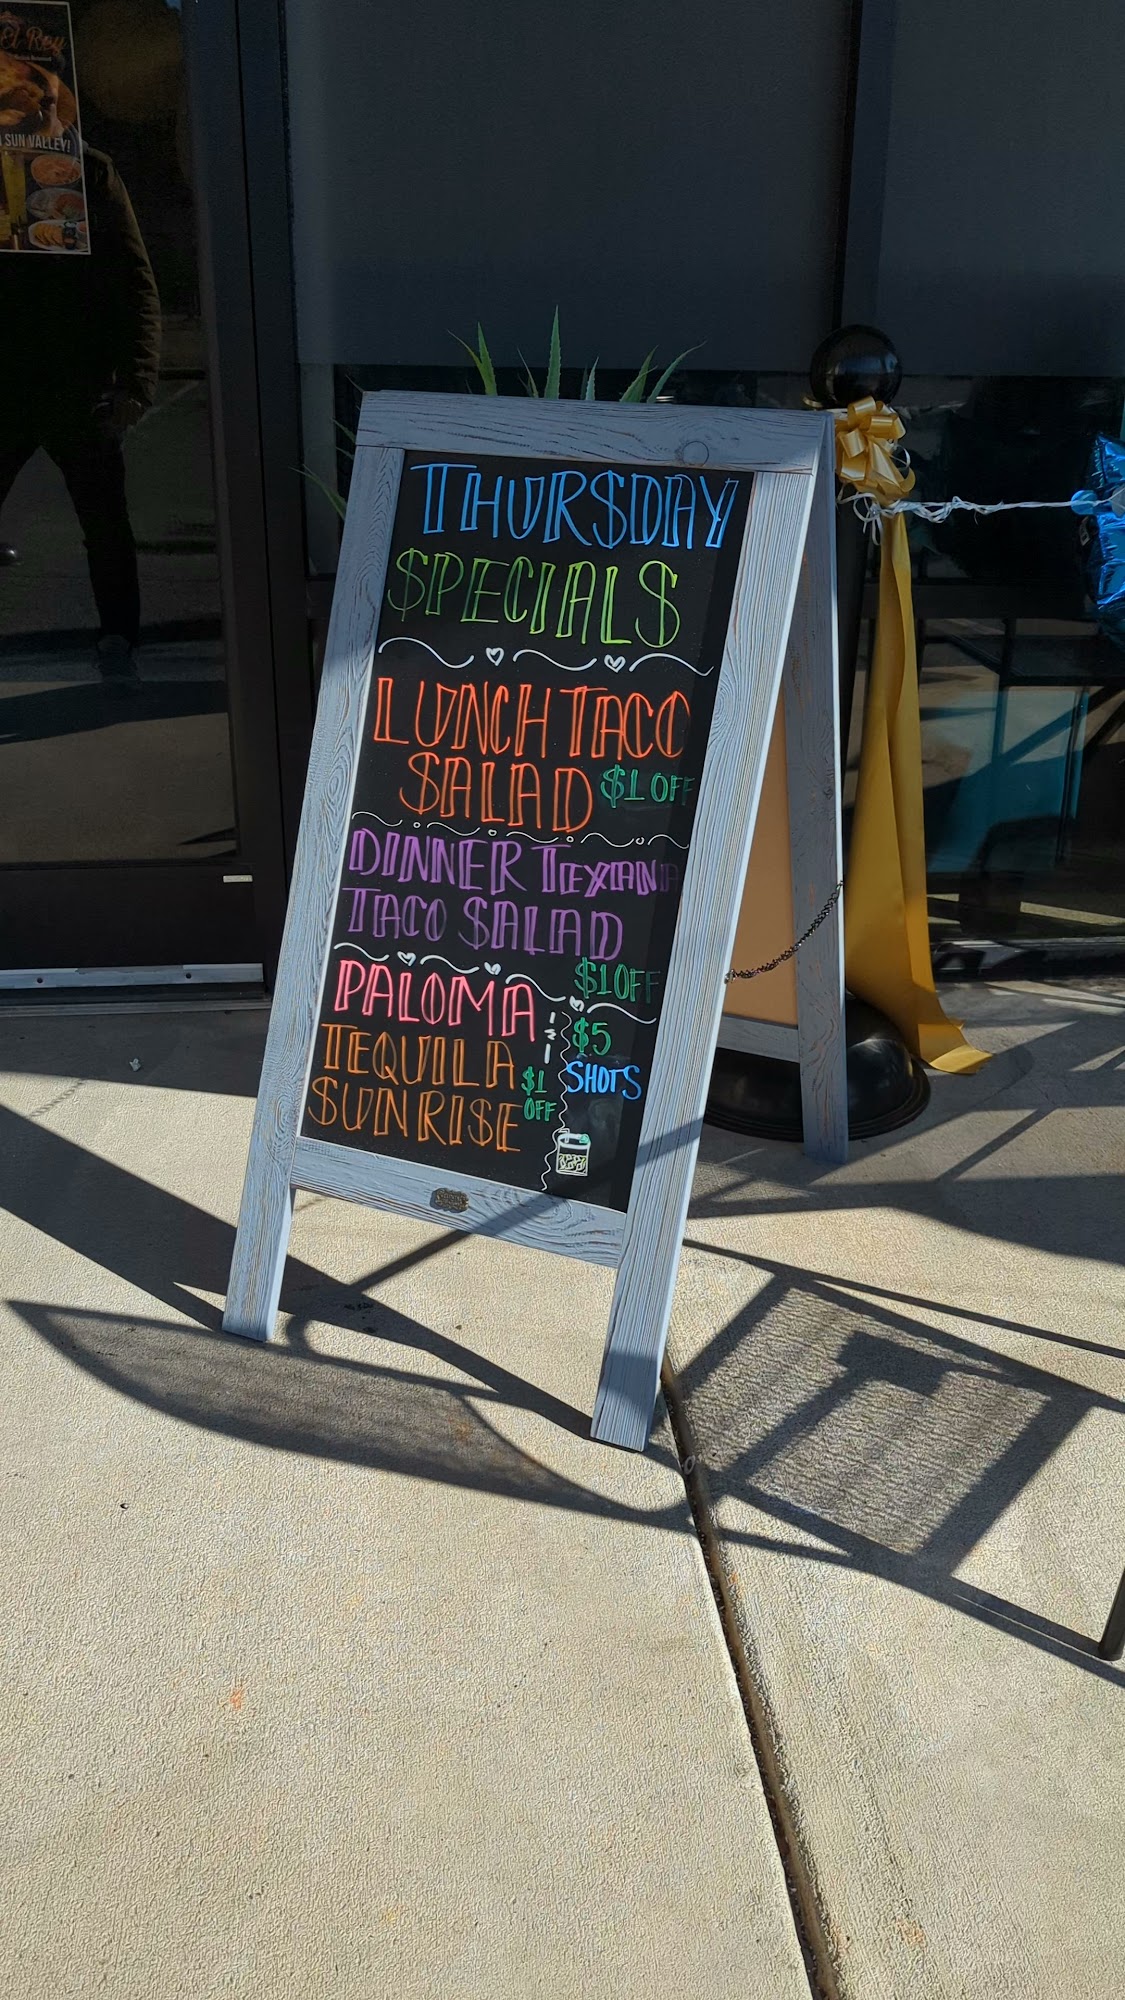 El Rey
SUN VALLEY!
THURSDAY
SPECIALS
LUNCH TACO
SALAD $1 OFF
DINNER TEXANA
TACO SALAD
$1 OFF
PALOMA
TEQUILA
SUNRISE
$1
OFF
$5
SHOTS